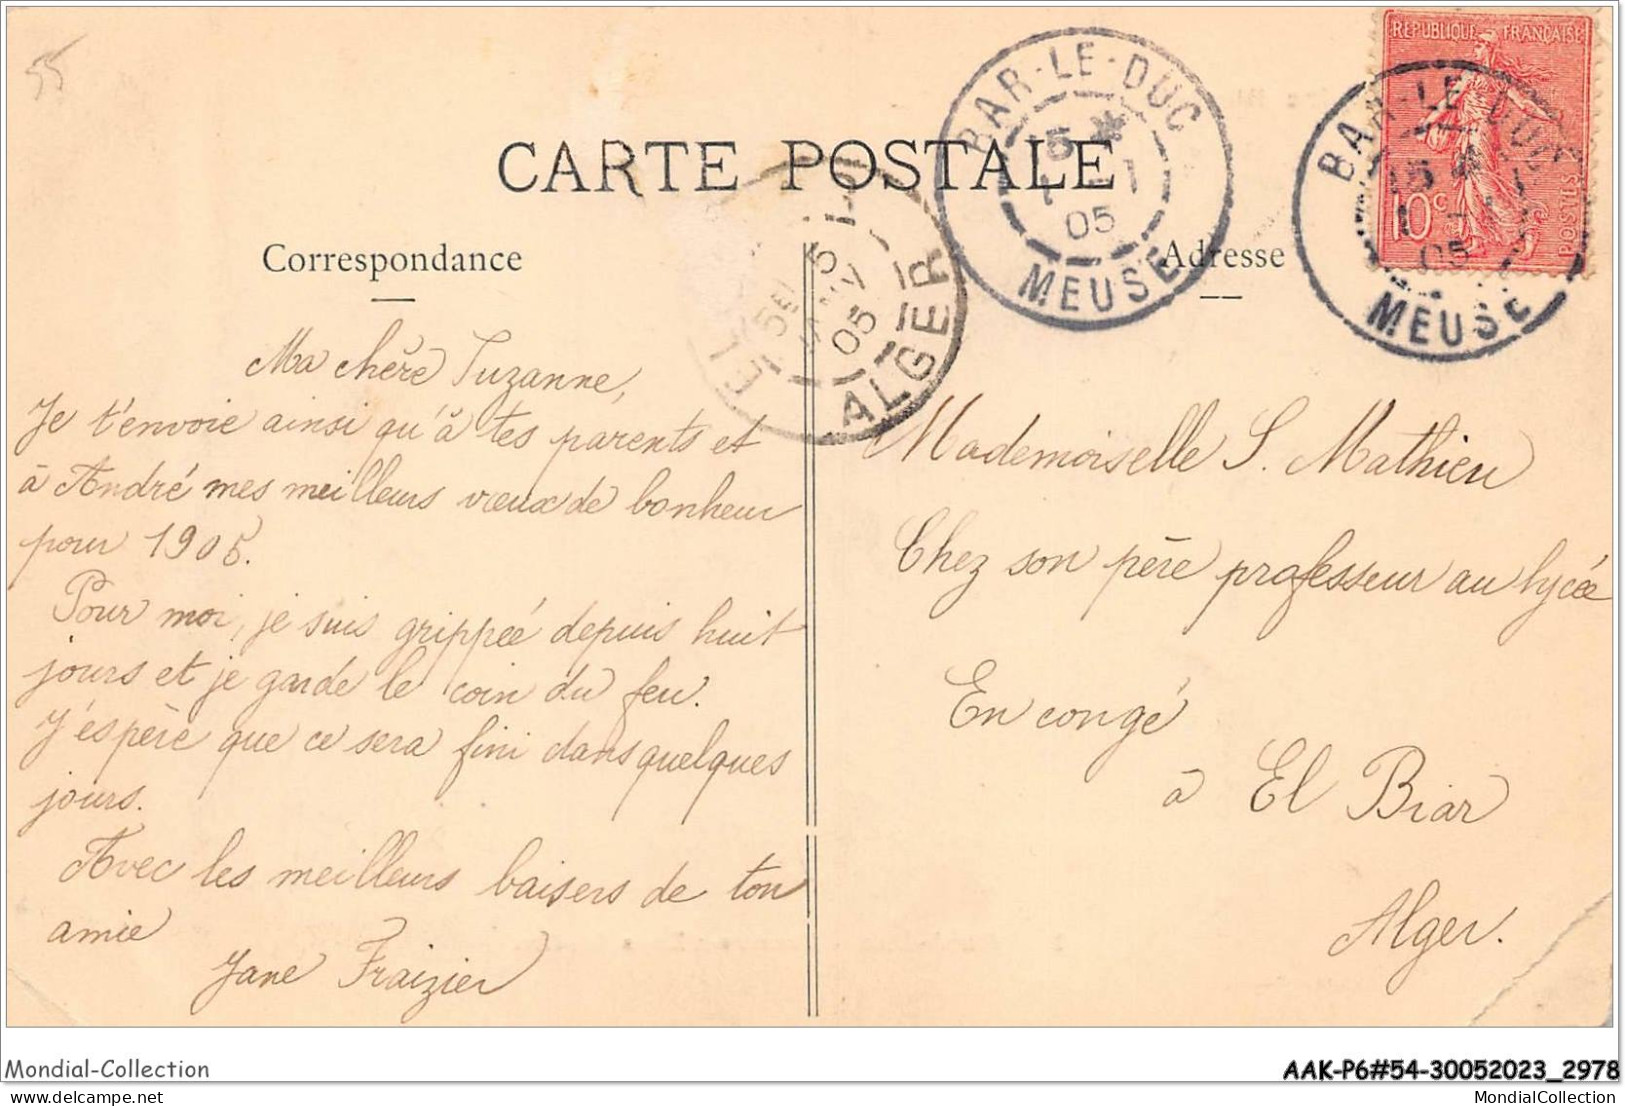 55
RÉPUBLIQUE FRANÇAISE
10c
POSTES
BAR-LE-DUC
5 *
1 - 1
05
MEUSE
BAR-LE-DUC
15 *
1 - 1
05
MEUSE
CARTE POSTALE
5E
5
JANV
05
ALGER
Correspondance
Ma chère Suzanne,
Je t'envoie ainsi qu'à tes parents et
à André mes meilleurs vœux de bonheur
pour 1905.
Pour moi, je suis grippée depuis huit
jours et je garde le coin du feu.
J'espère que ce sera fini dans quelques
jours.
Avec les meilleurs baisers de ton
amie
Jane Fraizier
Adresse
Mademoiselle S. Mathieu
Chez son père professeur au lycée
En congé
à El Biar
Alger.
Mondial-Collection
AAK-P6#54-30052023_2978
delcampe.net
MondialCollection